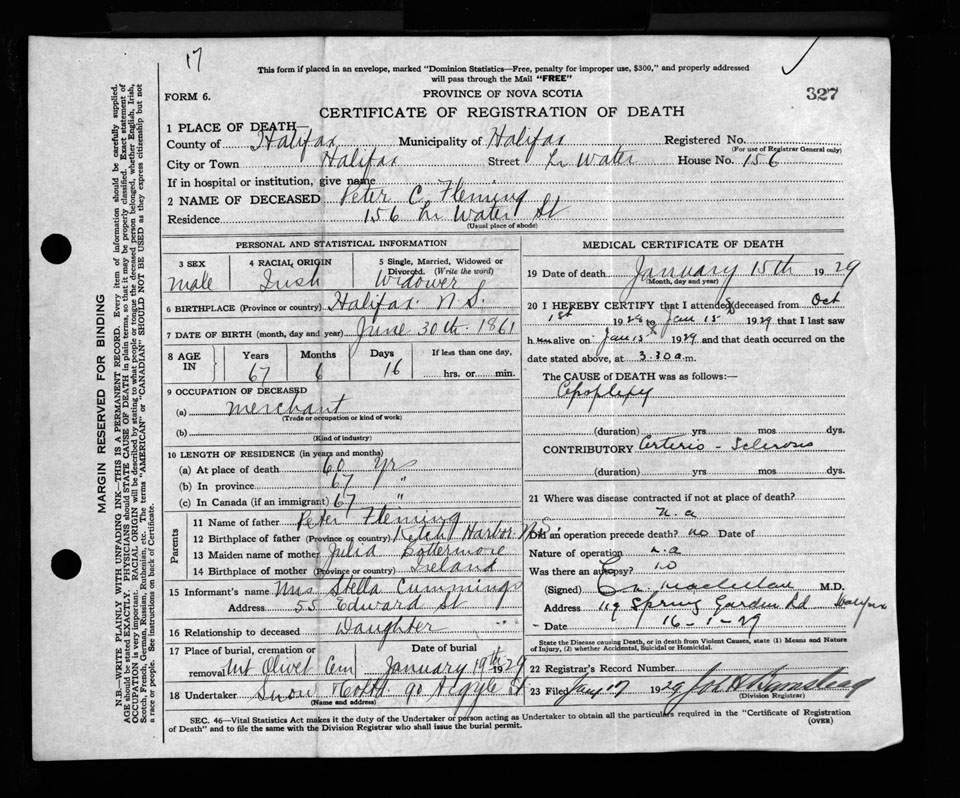 17
This form if placed in an envelope, marked "Dominion Statistics—Free, penalty for improper use, $300," and properly addressed
will pass through the Mail "FREE"
FORM 6.
PROVINCE OF NOVA SCOTIA
327
CERTIFICATE OF REGISTRATION OF DEATH
1 PLACE OF DEATH—
County of Halifax Municipality of Halifax Registered No.
(For use of Registrar General only)
City or Town Halifax Street Lr Water House No. 156
If in hospital or institution, give name
2 NAME OF DECEASED Peter C. Fleming
Residence 156 Lr Water St
(Usual place of abode)
PERSONAL AND STATISTICAL INFORMATION
3 SEX 4 RACIAL ORIGIN 5 Single, Married, Widowed or
Divorced. (Write the word)
male Irish Widower
6 BIRTHPLACE (Province or country) Halifax N.S.
7 DATE OF BIRTH (month, day and year) June 30th 1861
8 AGE IN Years Months Days If less than one day,
67 6 16 hrs. or min.
9 OCCUPATION OF DECEASED
(a) merchant
(Trade or occupation or kind of work)
(b)
(Kind of industry)
10 LENGTH OF RESIDENCE (in years and months)
(a) At place of death 60 yrs
(b) In province 67 "
(c) In Canada (if an immigrant) 67 "
Parents
11 Name of father Peter Fleming
12 Birthplace of father (Province or country) Ketch Harbor N.S.
13 Maiden name of mother Julia
14 Birthplace of mother (Province or country) Ireland
15 Informant's name Mrs Stella Cummings
Address 55 Edward St
16 Relationship to deceased Daughter
17 Place of burial, cremation or Date of burial
removal Mt Olivet Cem January 19th 1929
18 Undertaker Snow 90 Argyle St
(Name and address)
MEDICAL CERTIFICATE OF DEATH
19 Date of death January 15th 1929
(Month, day and year)
20 I HEREBY CERTIFY that I attended deceased from Oct
1st 1928 to Jan 15 1929 that I last saw
him alive on Jan 15 1929 and that death occurred on the
date stated above, at 3.30 a.m.
The CAUSE of DEATH was as follows:—
Apoplexy
(duration) yrs mos dys.
CONTRIBUTORY Arterio-Sclerosis
(duration) yrs mos dys.
21 Where was disease contracted if not at place of death?
n.a
Did an operation precede death? no Date of
Nature of operation n.a
Was there an autopsy? no
(Signed) M.D.
Address 119 Spring Garden Rd Halifax
Date 16-1-29
State the Disease causing Death, or in death from Violent Causes, state (1) Means and Nature
of Injury, (2) whether Accidental, Suicidal or Homicidal.
22 Registrar's Record Number
23 Filed Jany 17 1929
(Division Registrar)
SEC. 46—Vital Statistics Act makes it the duty of the Undertaker or person acting as Undertaker to obtain all the particulars required in the "Certificate of Registration
of Death" and to file the same with the Division Registrar who shall issue the burial permit.
(OVER)
MARGIN RESERVED FOR BINDING
N.B.—WRITE PLAINLY WITH UNFADING INK—THIS IS A PERMANENT RECORD. Every item of information should be carefully supplied.
AGE should be stated EXACTLY. PHYSICIANS should STATE CAUSE OF DEATH in plain terms, so that it may be properly classified. Exact statement of
OCCUPATION is very important. RACIAL ORIGIN will be described by stating to what people or tongue the deceased person belonged, whether English, Irish,
Scotch, French, German, Russian, Ruthenian, etc. The terms "AMERICAN" or "CANADIAN" SHOULD NOT BE USED as they express citizenship but not
a race or people. See instructions on back of Certificate.